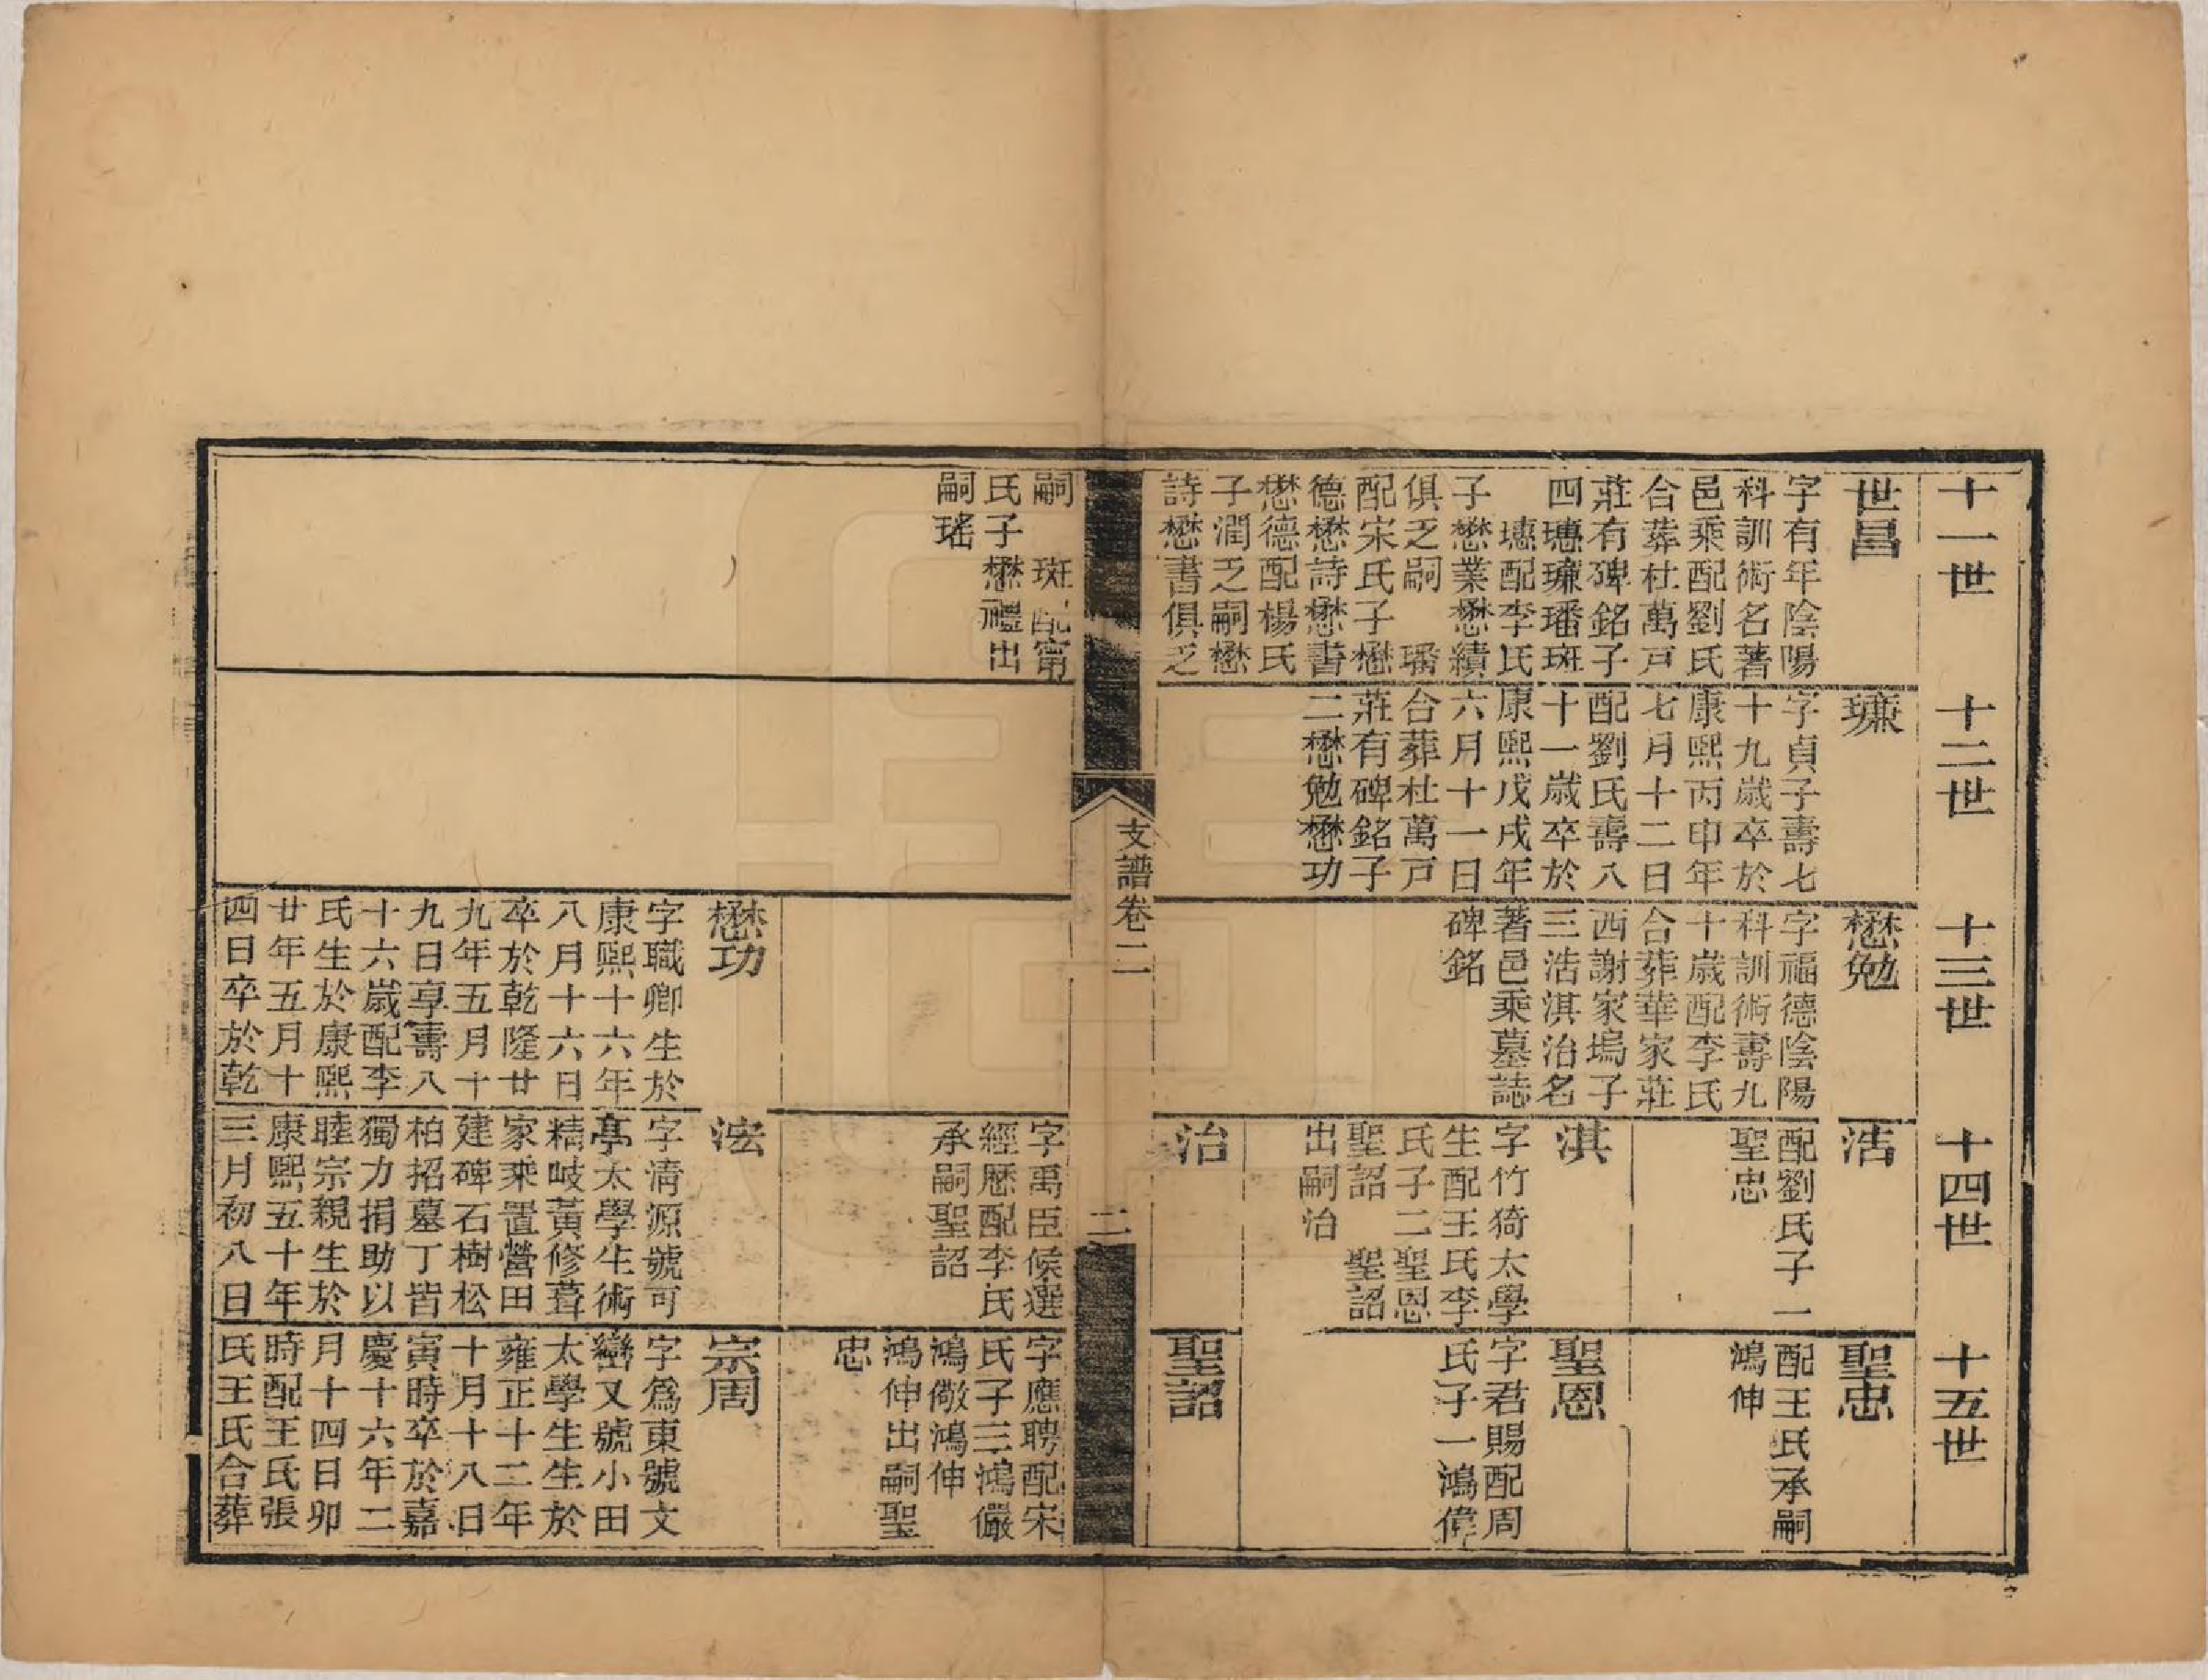 十一世
世昌
字有年陰陽
科訓術名著
邑乘配劉氏
合葬杜萬戸
莊有碑銘子
四璁㻩璠斑
璁配李氏
子懋業懋績
俱乏嗣 璠
配宋氏子懋
德懋詩懋書
懋德配楊氏
子潤乏嗣懋
詩懋書俱乏
嗣 斑配甯
氏子懋禮出
嗣瑤
十二世
㻩
字貞子壽七
十九歲卒於
康熙丙申年
七月十二日
配劉氏壽八
十一歲卒於
康熙戊戌年
六月十一日
合葬杜萬戸
莊有碑銘子
二懋勉懋功
十三世
懋勉
字福德陰陽
科訓術壽九
十歲配李氏
合葬華家莊
西謝家塢子
三浩淇治名
著邑乘墓誌
碑銘
懋功
字職卿生於
康熙十六年
八月十六日
卒於乾隆廿
九年五月十
九日享壽八
十六歲配李
氏生於康熙
廿年五月十
四日卒於乾
十四世
浩
配劉氏子一
聖忠
淇
字竹猗太學
生配王氏李
氏子二聖恩
聖詔 聖詔
出嗣治
治
字萬臣候選
經歷配李氏
承嗣聖詔
浤
字淸源號可
亭太學生術
精岐黃修葺
家乘置營田
建碑石樹松
柏招墓丁皆
獨力捐助以
睦宗親生於
康熙五十年
三月初八日
十五世
聖忠
配王氏承嗣
鴻伸
聖恩
字君賜配周
氏子一鴻偉
聖詔
字應聘配宋
氏子三鴻儼
鴻儆鴻伸
鴻伸出嗣聖
忠
宗周
字爲東號文
巒又號小田
太學生生於
雍正十二年
十月十八日
寅時卒於嘉
慶十六年二
月十四日卯
時配王氏張
氏王氏合葬
支譜卷二
二